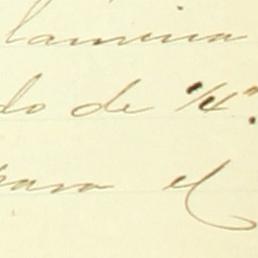 lamina
do de "H".
para el